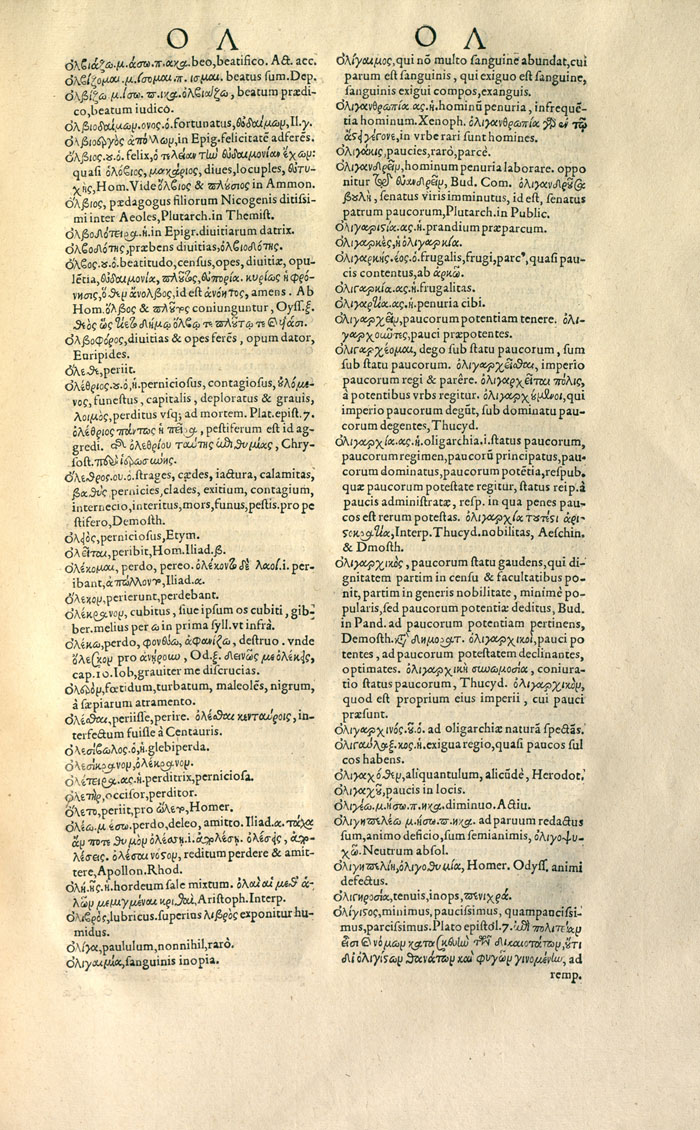 Ο Λ
Ο Λ
ὀλβιάζω.μ.άσω.π.ακα.beo,beatifico. Act. acc.
ὀλβίζομαι.μ.ίσομαι.π.ισμαι. beatus sum. Dep.
ὀλβίζω.μ.ίσω.π.ικα.ὀλβιάζω, beatum prædi-
co,beatum iudico.
ὀλβιοδαίμων.ονος.ὁ.fortunatus, εὐδαίμων, Il.γ.
ὀλβιοεργὸς ἀπόλλων, in Epig. felicitatē adferēs.
ὄλβιος.ου.ὁ. felix, ὁ τελείαν τὴν εὐδαιμονίαν ἔχων:
quasi ὁλόβιος, μακάριος, diues, locuples, εὐτυ-
χὴς, Hom. Vide ὄλβιος & πλούσιος in Ammon.
ὄλβιος, pædagogus filiorum Nicogenis ditissi-
mi inter Aeoles, Plutarch.in Themist.
ὀλβοδότειρα.ἡ.in Epigr.diuitiarum datrix.
ὀλβοδότης, præbens diuitias, ὀλβιοδότης.
ὄλβος.ου.ὁ.beatitudo, census, opes, diuitiæ, opu-
lētia, εὐδαιμονία, πλοῦτος, εὐπορία. κυρίως ἡ φρό-
νησις, ὅθεν ἄνολβος, id est ἀνόητος, amens. Ab
Hom. ὄλβος & πλοῦτος coniunguntur, Oyss.ξ.
ὀλβοφόρος, diuitias & opes ferēs, opum dator,
Euripides.
ὄλεθε, periit.
ὀλέθριος.ου.ὁ,ἡ.perniciosus, contagiosus, οὐλόμε-
νος, funestus, capitalis, deploratus & grauis,
λοιμὸς, perditus vsq; ad mortem. Plat.epist.7.
ὀλέθριος πάντως ἡ πεῖρα, pestiferum est id ag-
gredi. ὀλεθρίου ταύτης ἐπιθυμίας, Chry-
sost.
ὄλεθρος.ου.ὁ.strages, cædes, iactura, calamitas,
βαθὺς pernicies, clades, exitium, contagium,
internecio, interitus, mors, funus, pestis. pro pe
stifero, Demosth.
perniciosus, Etym.
ὀλεῖται, peribit, Hom.Iliad.β.
ὀλέκομαι, perdo, pereo. ὀλέκοντο δὲ λαοὶ.i. per-
ibant, ἀπώλλοντο, Iliad.α.
ὄλεκον, perierunt, perdebant.
ὀλέκρανον, cubitus, siue ipsum os cubiti, gib-
ber. melius per ω in prima syll. vt infrà.
ὀλέκω, perdo, φονεύω, ἀφανίζω, destruo. vnde
ὄλεσκον pro ἀνῄρουν, Od.ξ. δεινῶς με ὀλέκῃς,
cap.10.Iob, grauiter me discrucias.
fœtidum, turbatum, maleolēs, nigrum,
à sæpiarum atramento.
ὀλέσθαι, periisse, perire. ὀλέσθαι κενταύροις, in-
terfectum fuisse à Centauris.
ὀλεσίβωλος.ὁ,ἡ.glebiperda.
ὀλεσίκρανον, ὀλέκρανον.
ὀλέτειρα.ας.ἡ.perditrix, perniciosa.
ὀλετὴρ, occisor, perditor.
ὄλετο, periit, pro ὤλετο, Homer.
ὀλέω.μ.έσω.perdo, deleo, amitto. Iliad.α. τάχα
ἄν ποτε θυμὸν ὀλέσῃ.i. ἀπολέσῃ. ὀλέσῃς, ἀπο-
λέσεις. ὀλέσαι νόστον, reditum perdere & amit-
tere, Apollon.Rhod.
ὀλὴ.ῆς.ἡ.hordeum sale mixtum. ὀλαὶ αἱ μεθ' ἁ-
λῶν μεμιγμέναι κριθαὶ, Aristoph.Interp.
ὀλιβρὸς, lubricus. superius λιβρὸς exponitur hu-
midus.
ὀλίγα, paululum, nonnihil, rarò.
ὀλιγαιμία, sanguinis inopia.
ὀλίγαιμος, qui nō multo sanguine abundat, cui
parum est sanguinis, qui exiguo est sanguine,
sanguinis exigui compos, exanguis.
ὀλιγανθρωπία.ας.ἡ.hominū penuria, infrequē-
tia hominum. Xenoph. ὀλιγανθρωπία γὰρ ἐν τῷ
ἄστει γέγονε, in vrbe rari sunt homines.
ὀλιγάκις, paucies, rarò, parcè.
ὀλιγανδρεῖν, hominum penuria laborare. oppo
nitur τῷ εὐανδρεῖν, Bud. Com. ὀλιγανδροῦσα
βουλὴ, senatus viris imminutus, id est, senatus
patrum paucorum, Plutarch.in Public.
ὀλιγαριστία.ας.ἡ.prandium præparcum.
ὀλιγαρκὲς, ἡ ὀλιγαρκία.
ὀλιγαρκὴς.έος.ὁ.frugalis, frugi, parc⁹, quasi pau-
cis contentus, ab ἀρκῶ.
ὀλιγαρκία.ας.ἡ.frugalitas.
ὀλιγαρτία.ας.ἡ.penuria cibi.
ὀλιγαρχεῖν, paucorum potentiam tenere. ὀλι-
γαρχοῦντες, pauci præpotentes.
ὀλιγαρχέομαι, dego sub statu paucorum, sum
sub statu paucorum. ὀλιγαρχεῖσθαι, imperio
paucorum regi & parêre. ὀλιγαρχεῖται πόλις,
à potentibus vrbs regitur. ὀλιγαρχούμενοι, qui
imperio paucorum degūt, sub dominatu pau-
corum degentes, Thucyd.
ὀλιγαρχία.ας.ἡ.oligarchia.i.status paucorum,
paucorum regimen, paucorū principatus, pau-
corum dominatus, paucorum potētia, respub.
quæ paucorum potestate regitur, status reip.à
paucis administratæ, resp. in qua penes pau-
cos est rerum potestas. ὀλιγαρχία τουτέστι ἀρι-
στοκρατία, Interp.Thucyd. nobilitas, Aeschin.
& Dmosth.
ὀλιγαρχικὸς, paucorum statu gaudens, qui di-
gnitatem partim in censu & facultatibus po-
nit, partim in generis nobilitate, minimè po-
pularis, sed paucorum potentiæ deditus, Bud.
in Pand. ad paucorum potentiam pertinens,
Demosth. κατὰ τιμοκρατ. ὀλιγαρχικοὶ, pauci po
tentes, ad paucorum potestatem declinantes,
optimates. ὀλιγαρχικὴ συνωμοσία, coniura-
tio status paucorum, Thucyd. ὀλιγαρχικὸν,
quod est proprium eius imperii, cui pauci
præsunt.
ὀλιγαρχινός.οῦ.ὁ. ad oligarchiæ naturā spectās.
ὀλιγαῦλαξ.κος.ἡ.exigua regio, quasi paucos sul
cos habens.
ὀλιγαχόθεν, aliquantulum, alicūdè, Herodot.
ὀλιγαχοῦ, paucis in locis.
ὀλιγέω.μ.ήσω.π.ηκα.diminuo. Actiu.
ὀλιγηπελέω.μ.ήσω.π.ηκα. ad paruum redactus
sum, animo deficio, sum semianimis, ὀλιγοψυ-
χῶ. Neutrum absol.
ὀλιγηπελίη, ὀλιγοθυμία, Homer. Odyss. animi
defectus.
ὀλιγηροσία, tenuis, inops, πενιχρά.
ὀλίγιστος, minimus, paucissimus, quampancissi-
mus, parcissimus. Plato epistol.7. ἐπὶ πολιτείαν
ἔτι
δι' ὀλιγίστων θανάτων καὶ φυγῶν γινομένην, ad
remp.